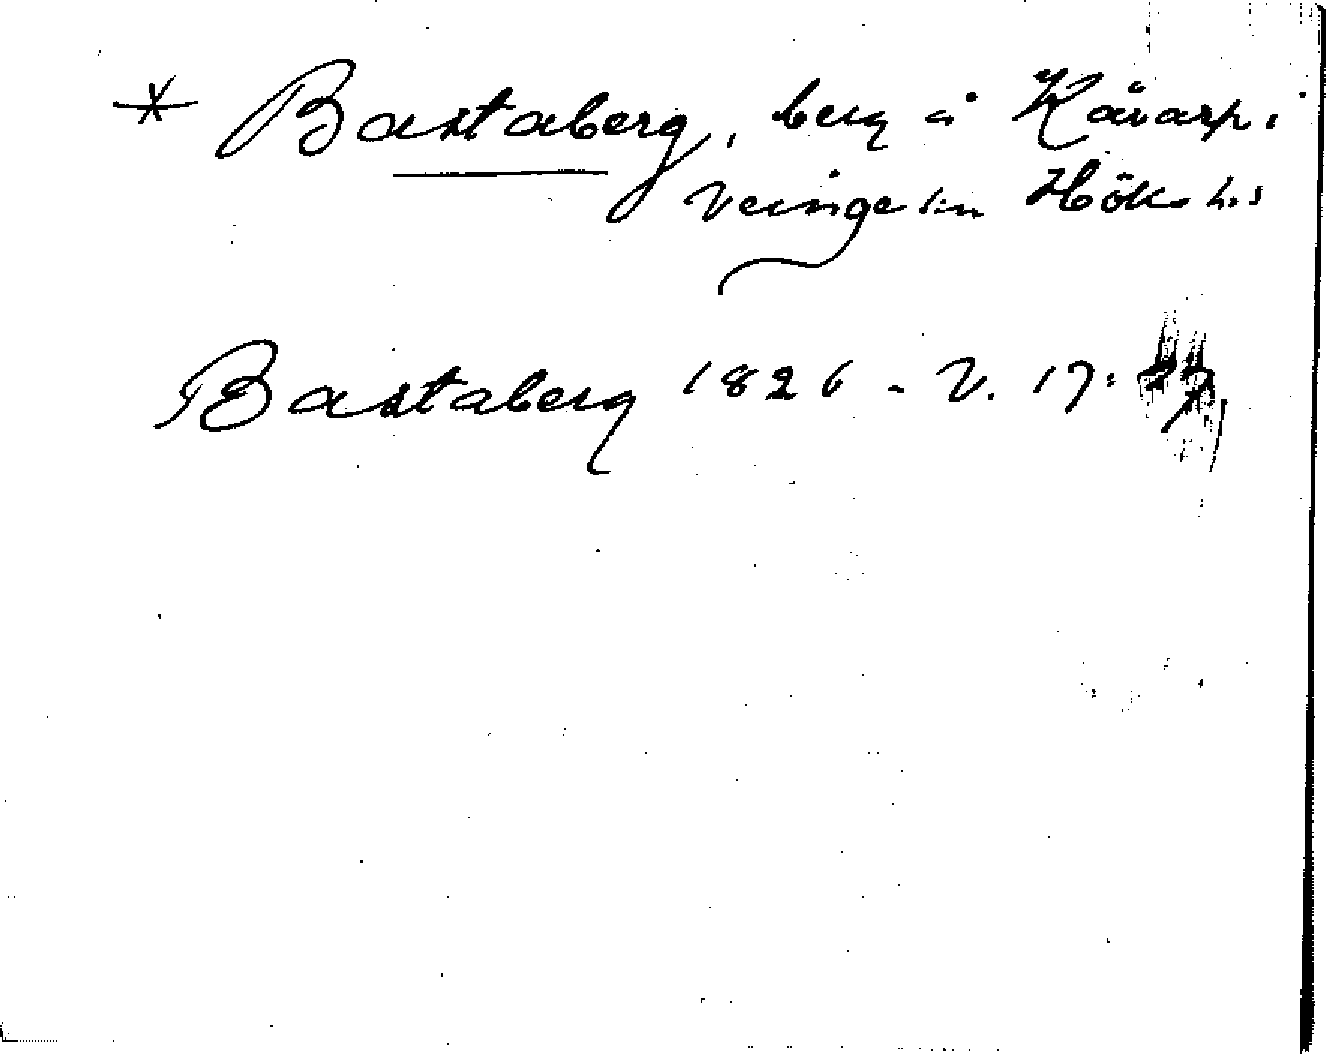 * Bastaberg, berg å Kåvarp i
Veinge sn Höks h.d
Bastaberg 1826 - V. 17: